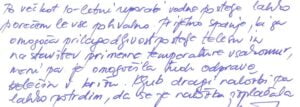 Po večkot 10-letni uporabi vodne postelje lahko
poročam le vse pohvalno. Prijetno spanje, ki ga
omogoča prilagodljivost postelje telesu in
nastavitev primerne temperature vsakomur,
meni pa je omogočila tudi odpravo
bolečin v križu. Kljub dragi naložbi pa
lahko potrdim, da se je naložba izplačala